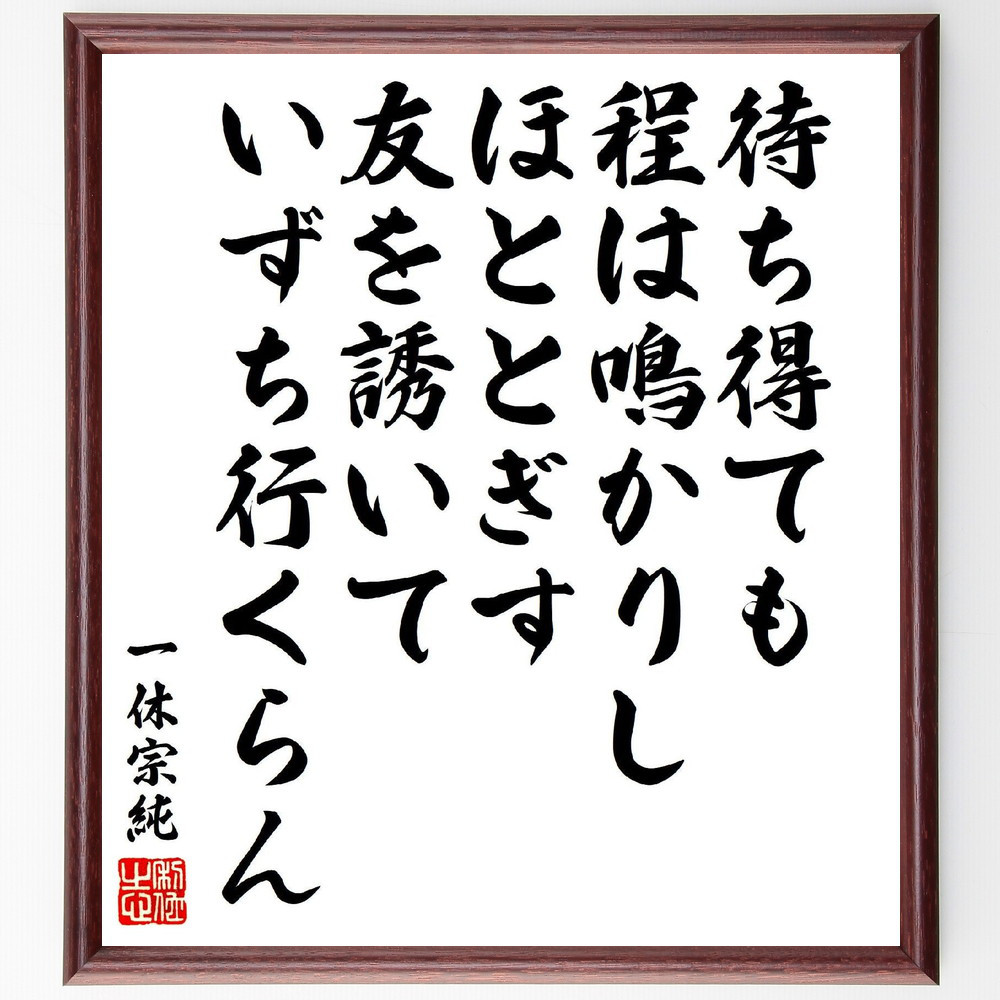 待ち得ても
程は鳴かりし
ほととぎす
友を誘いて
いずち行くらん
一休宗純